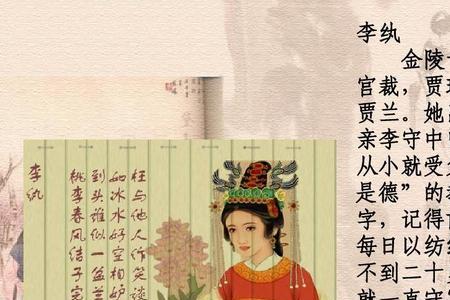 李纨
金陵
官裁，贾
贾兰。她
亲李守中
从小就受
是德”的
字，记得
每日以纺
不到二十
就一直守
李纨
桃李春风结子完
到头谁似一盆兰
如冰水好空相妒
枉与他人作笑谈